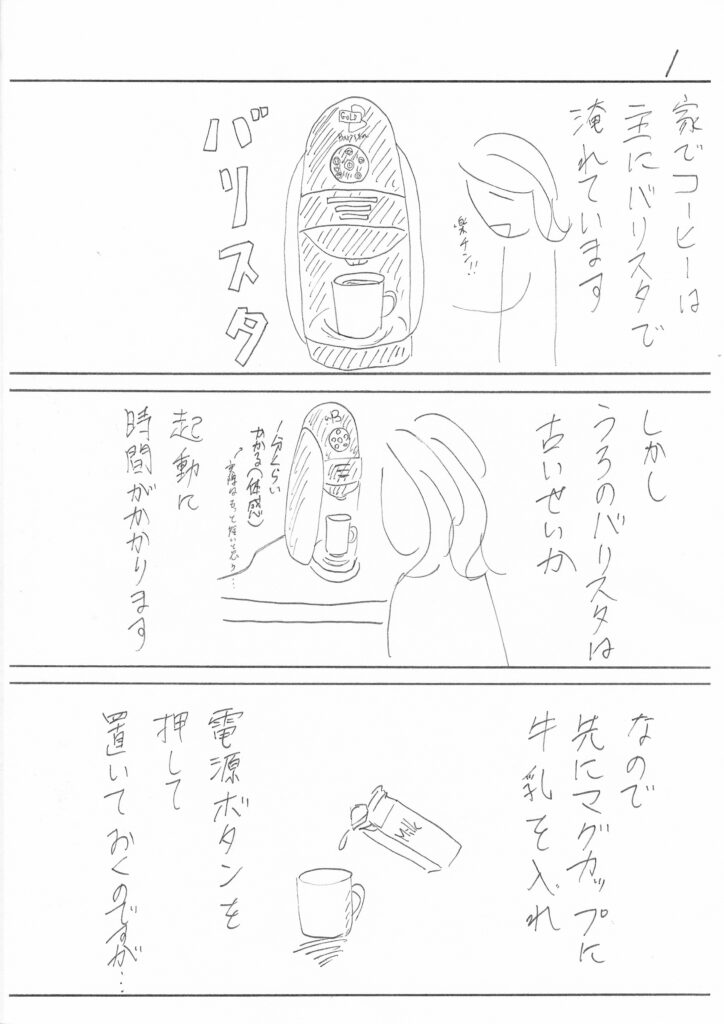 1
家でコーヒーは
主にバリスタで
淹れています
楽チン!!
GOLD
Barista
バリスタ
しかし
うちのバリスタは
古いせいか
B
1分くらい
かかる(体感)
起動に
時間がかかります
なので
先にマグカップに
牛乳を入れ
Milk
電源ボタンを
押して
置いておくのですが…